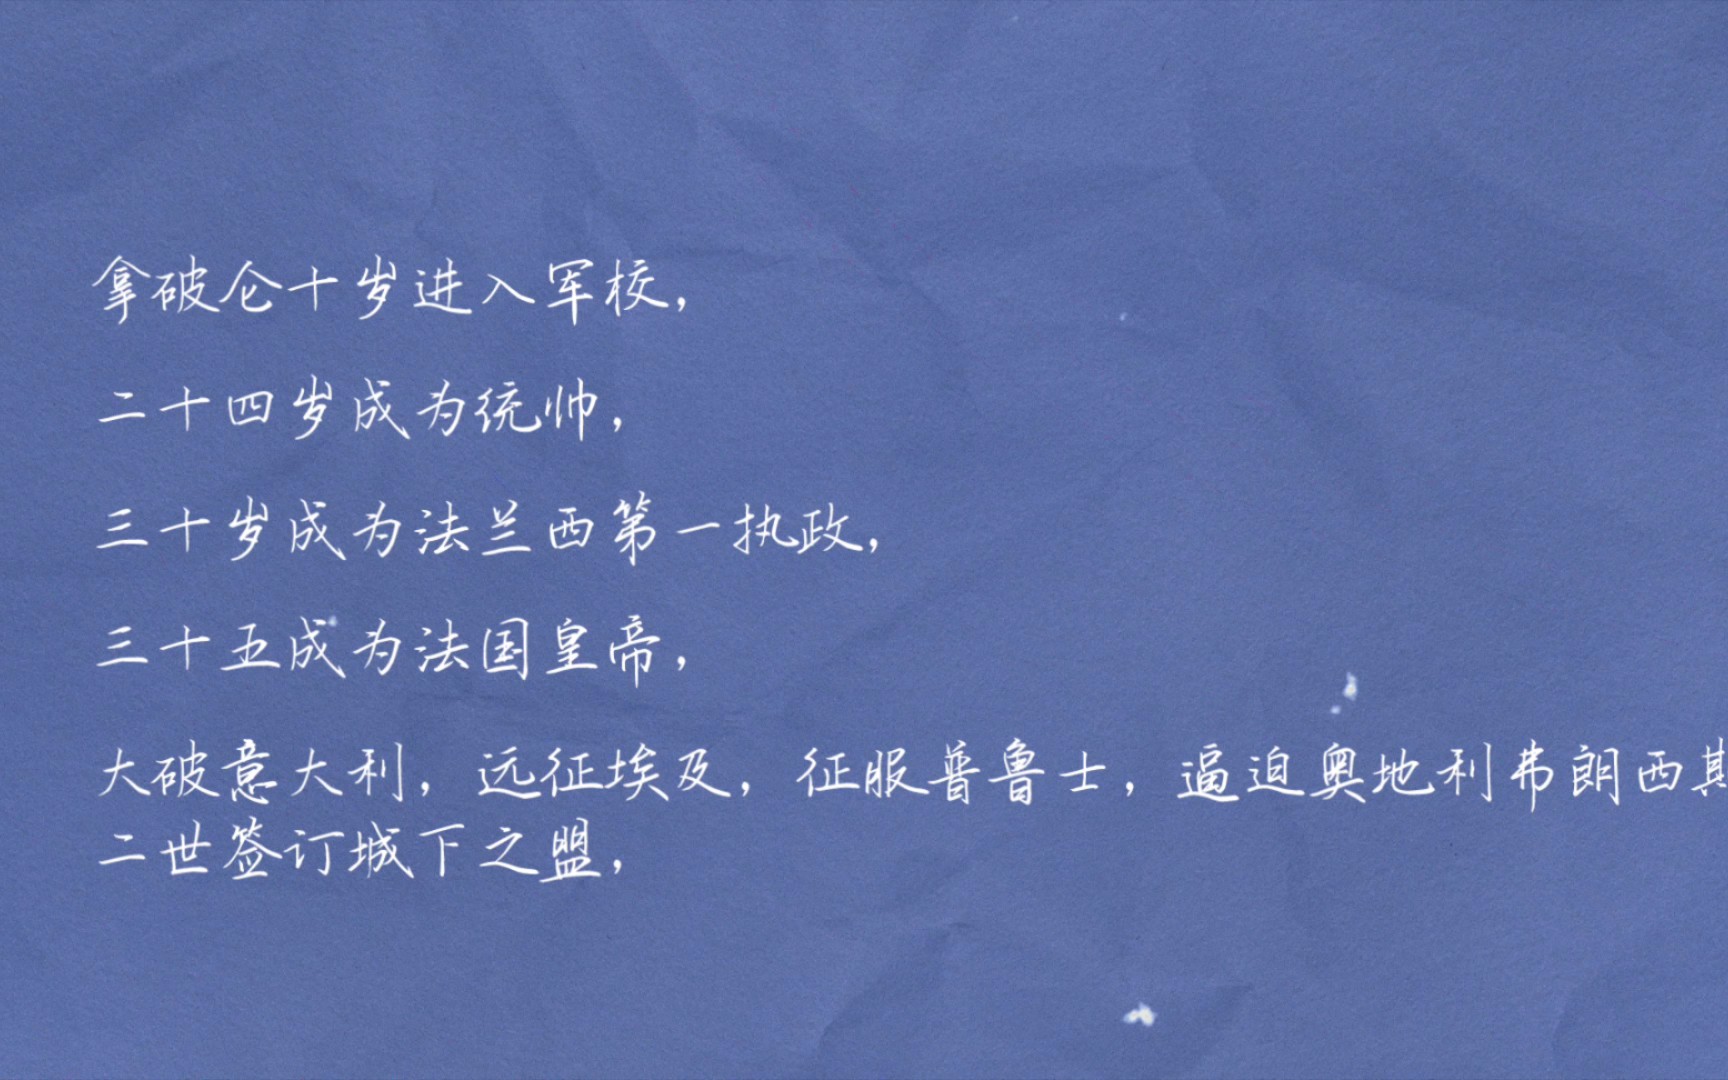 拿破仑十岁进入军校，
二十四岁成为统帅，
三十岁成为法兰西第一执政，
三十五成为法国皇帝，
大破意大利，远征埃及，征服普鲁士，逼迫奥地利弗朗西斯
二世签订城下之盟，